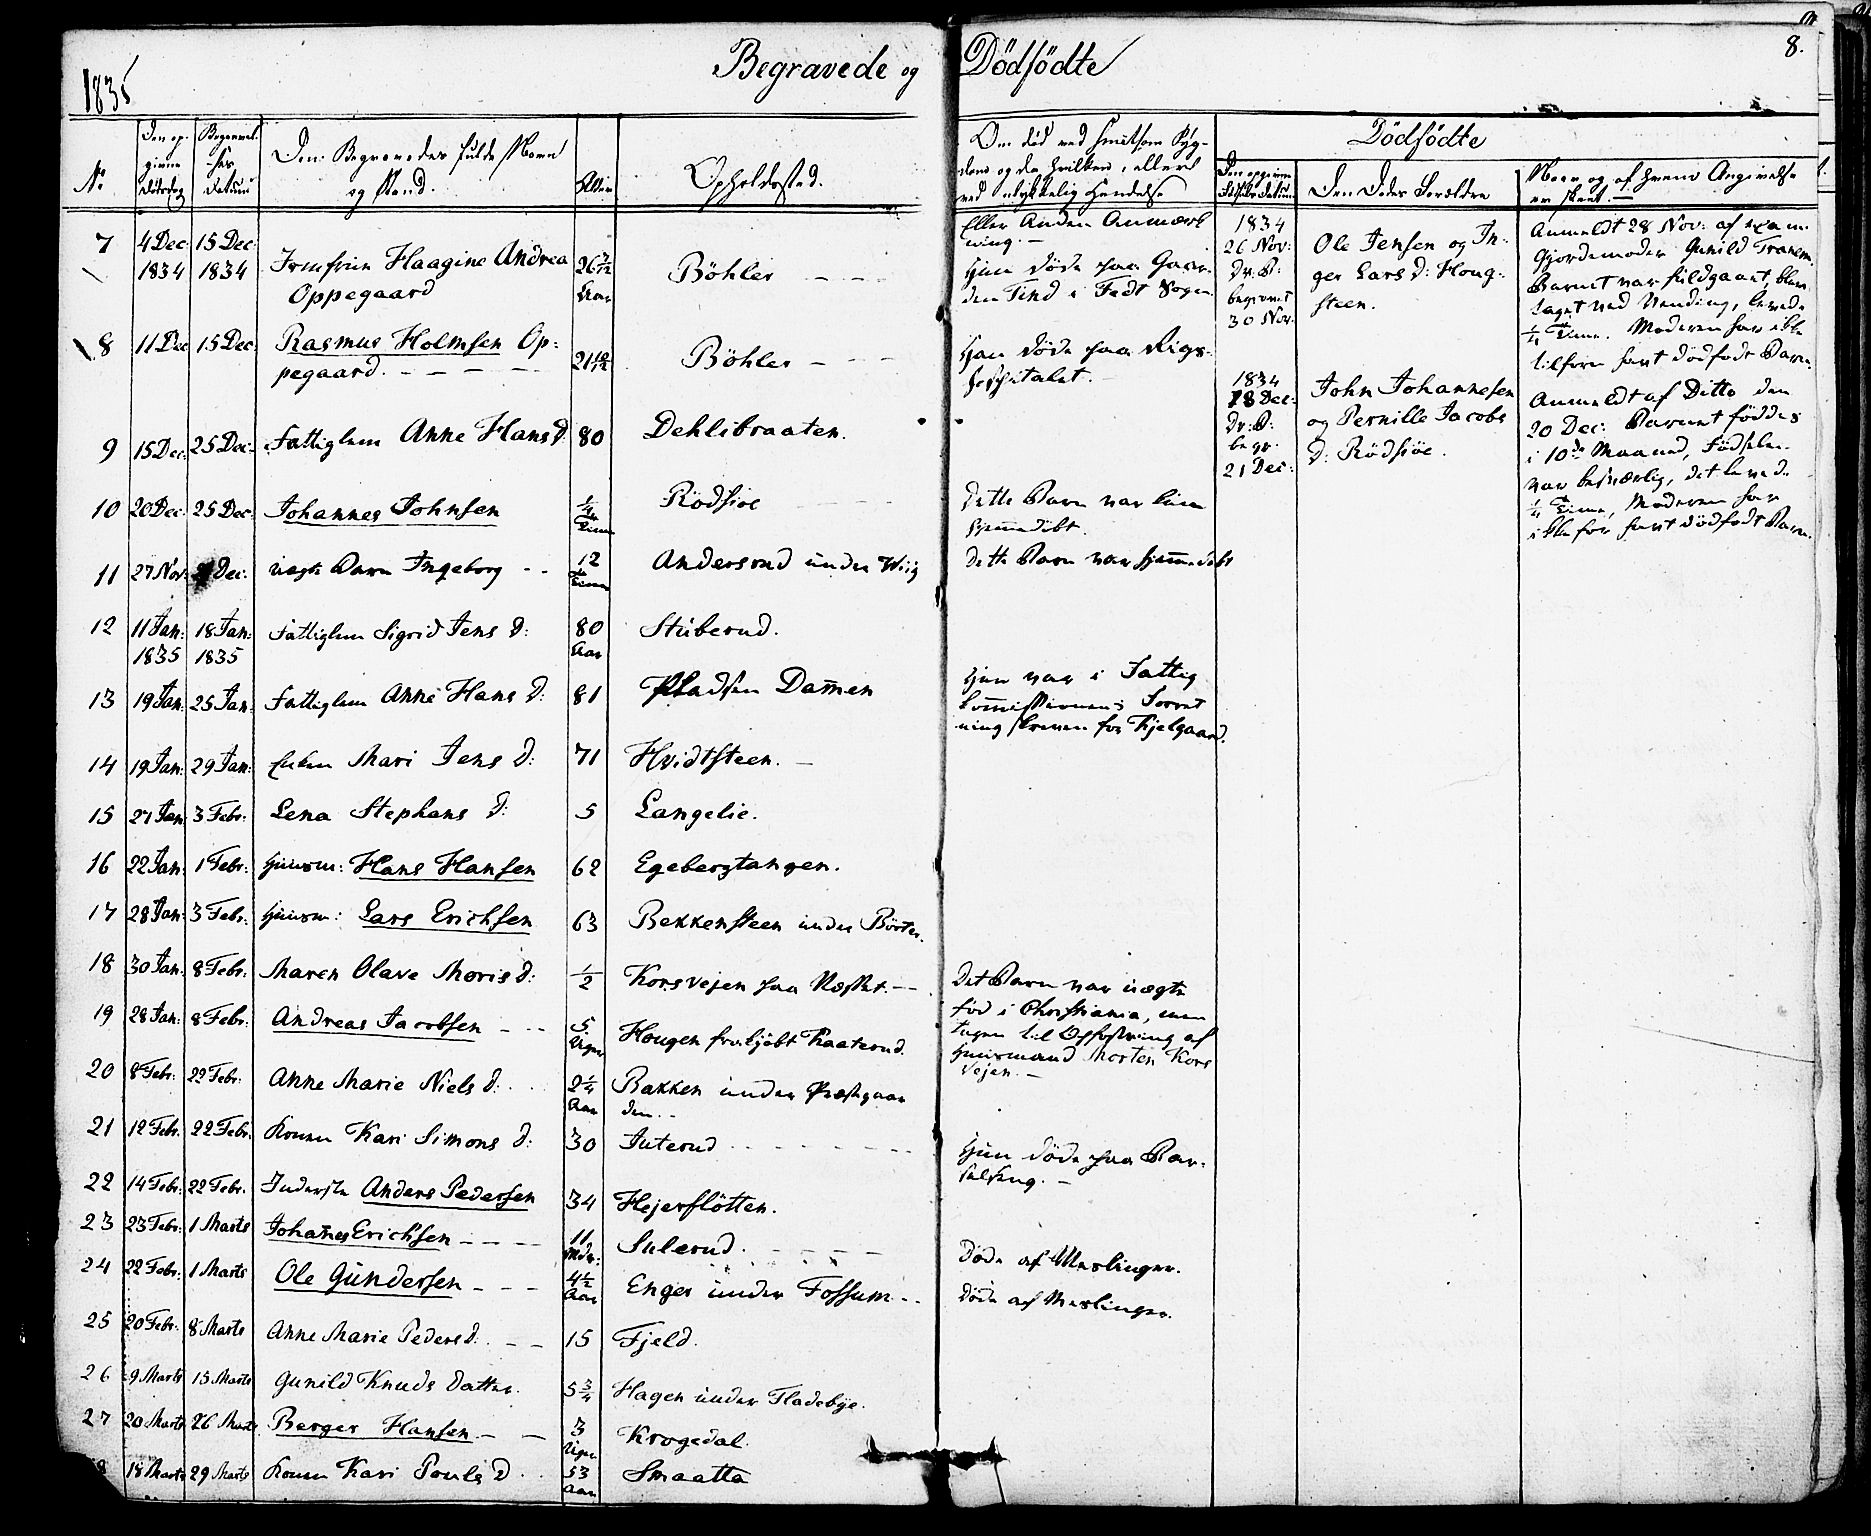 1835
Begravede og Dödfödte
8.
No
Den op-
givne
Dödsdag
Begravel-
ses
Datum
Den Begravedes fulde Navn
og Stand.
Alder
Opholdssted.
Om død ved smitsom Syg-
dom og da hvilken, eller
ved ulykkelig Hændelse
Eller Anden Anmærk
ning.
Dödfödte
Den Dødes Forældre
Naar og af hvem Angivelse
er skeet.
7 4 Dec: 1834 15 Dec: 1834 Jomfrue Haagine Andrea Oppegaard 26 Aar Böhler
Hun døde paa Gaar-
den Tind i Fedt Sogn
8 11 Dec 15 Dec Rasmus Holmsen Op:
pegaard. 21 Böhler
Han døde paa Rigs-
hospitalet.
9 15 Dec: 25 Dec: Fattiglem Anne Hans D. 80 Dehlibraaten.
10 20 Dec 25 Dec: Johannes Johnsen 1/4 Time Rödsioe
Dette Barn var
hjemmedöbt.
11 27 Nov: Dec: uægte Barn Ingeborg 12 Timer Andersrud under Wiig
dette Barn var hjemmedöbt
12 11 Jan: 1835 18 Jan: 1835 Fattiglem Sigrid Jens D: 80 Aar Stuberud.
13 19 Jan: 25 Jan: Fattiglem Anne Hans D: 81 Pladsen Dammen
Hun var i Fattig
Commissionens Forret
ning skreven for Kjelgaard.
14 19 Jan: 29 Jan: Mari Jens D: 71 Hvidtsteen.
15 27 Jan 3 Febr: Lena Stephans D: 5 Langelie.
16 22 Jan: 1 Febr: Huusm: Hans Hansen 62 Egebergtangen.
17 28 Jan: 3 Febr: Huusm: Lars Erichsen 63 Bekkensteen under Börter.
18 30 Jan: 8 Febr: Maren Olave Moris D: 1/2 Korsvejen paa Næsset.
Det Barn var uægte
fød i Christiania, men
tagen til Opfostring af
Huusmand Morten Kors
vejen.
19 28 Jan: 8 Febr: Andreas Jacobsen 5 Uger Hougen frakjøbt Raaterud.
20 8 Febr: 22 Febr: Anne Marie Niels D: 2 1/4 Aar Bakken under Præstegaar
den.
21 12 Febr. 22 Febr. Konen Kari Simons D: 30 Juterud
Hun döde paa Bar-
selseng.
22 14 Febr: 22 Febr. Inderste Anders Pedersen 34 Hejerslötten.
23 23 Febr: 1 Marts Johannes Erichsen 11 Mdr: Sulerud.
Døde af Meslinger.
24 22 Febr: 1 Marts Ole Gundersen 4 1/2 Aar Enger under Fossum
Døde af Meslinger.
25 20 Febr. 8 Marts Anne Marie Peders D: 15 Fjeld.
26 9 Marts 15 Marts Gunild Knuds datter. 5 3/4 Hagen under Fladebye.
27 20 Marts 26 Marts Berger Hansen 3 Uger Krogedal.
8 18 Marts 29 Marts Konen Kari Pouls D 53 Aar Smaatta
1834
26 Nov:
Dr: B:
begravet
30 Nov.
Ole Jensen og In-
ger Lars D: Houg-
steen.
Anmeldt 28 Nov: af exam:
Gjordemoder Gunild Tranem.
Barnet var fuldgaaet, blev
taget ved Vending, levede
1/4 Time. Moderen har ikke
tilforn havt dødfødt Barn.
1834
18 Dec:
Dr: B:
begr.
21 Dec:
John Johannesen
og Pernille Jacobs
D: Rödsiöe.
Anmeldt af Ditto den
20 Dec: Barnet föddes
i 10de Maaned, Födselen
var besværlig, det levede
1/4 Time, Moderen har
ikke før havt dødfødt Barn.